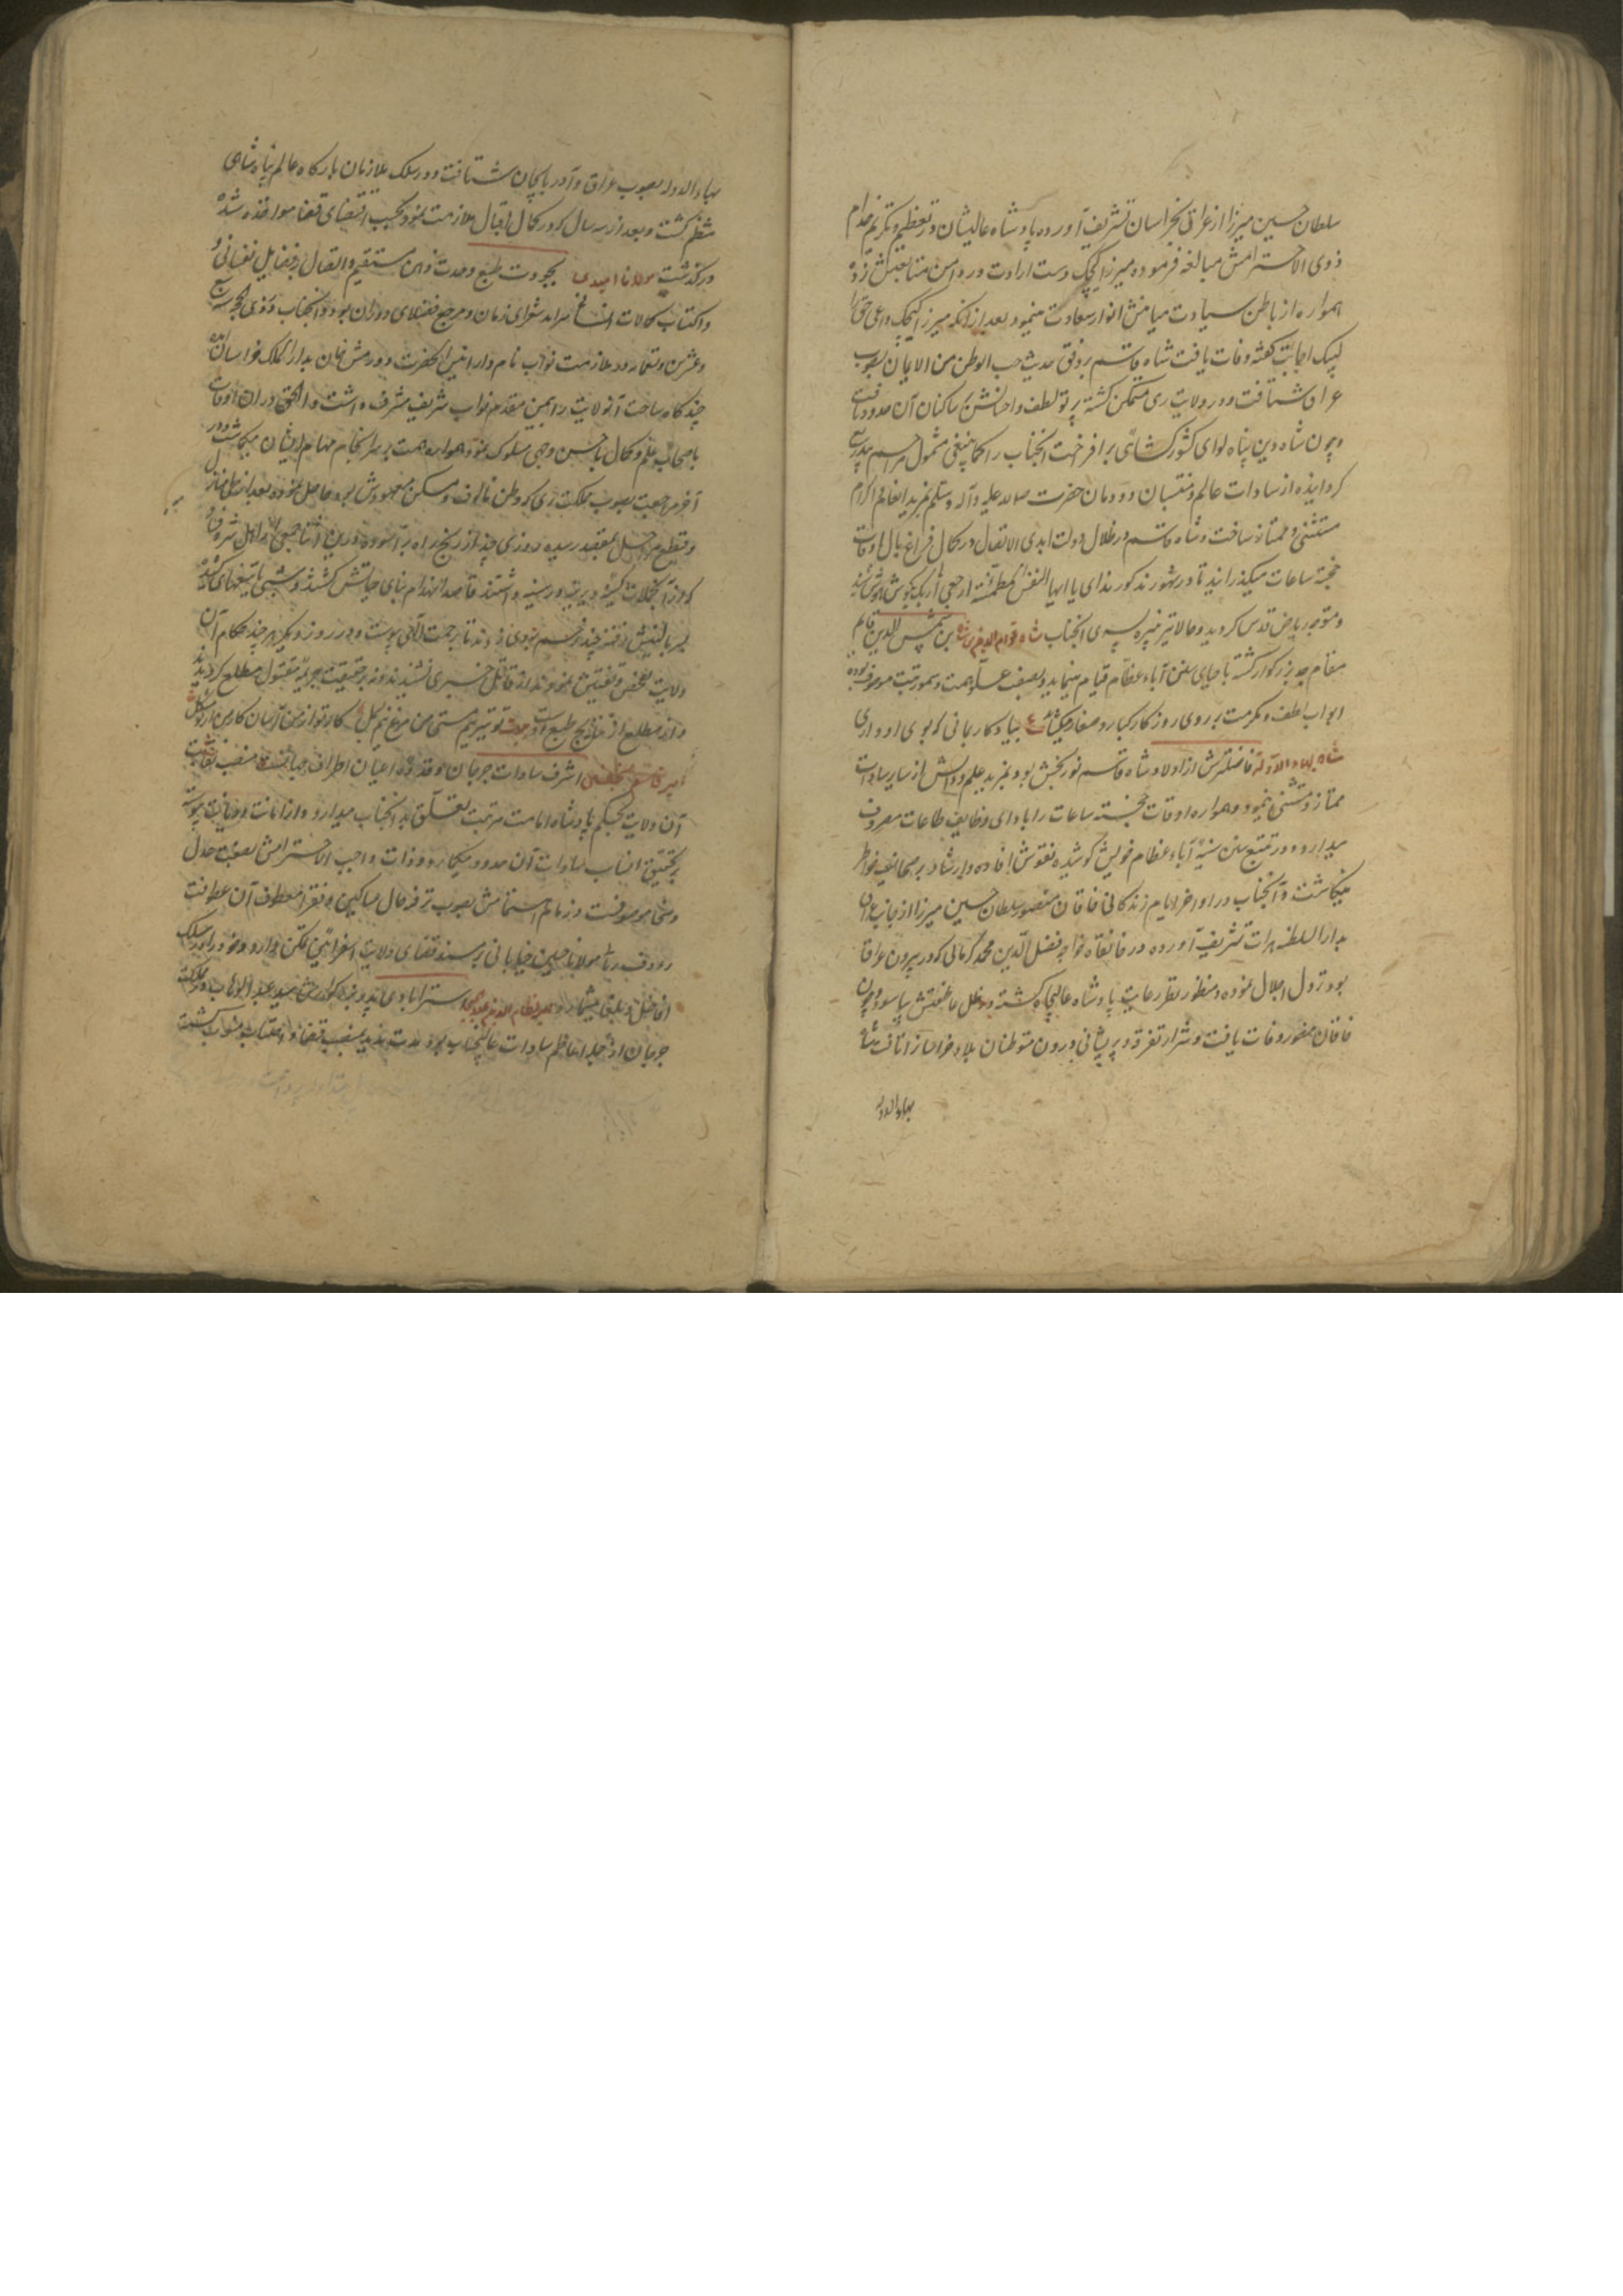 سلطان حسین میرزا از عراق بخراسان تشریف آورده پادشاه عالیشان در تعظیم و تکریم خدام
ذوی الاحترامش مبالغه فرموده میرزا کیچک دست ارادت در دامن متابعتش زده
همواره از باطن سیادت میامنش انوار سعادت مینمود بعد از آنکه میرزا کیچک داعی حق را
لبیک اجابت گفته وفات یافت شاه قاسم بر وفق حدیث حب الوطن من الایمان بصوب
عراق شتافت و در ولایت ری متمکن گشته پرتو لطف و احسانش بر ساکنان آن حدود تافت
و چون شاه دین پناه لوای کشورکشائی برافراخت آنجناب را کما ینبغی مشمول مراسم
گردانیده از سادات عالم و منتسبان دودمان حضرت صلی الله علیه و آله وسلم بمزید انعام و اکرام
مستثنی و ممتاز ساخت و شاه قاسم در ظلال دولت ابدی الاتصال در کمال فراغ بال اوقات
خجسته ساعات میگذرانید تا در شهور مذکور ندای یا ایها النفس المطمئنة ارجعی الی ربک بگوش هوش شنید
و متوجه ریاض قدس گردید و حالا نیز نبیره پسری آنجناب شاه قوام الدین بن شمس الدین قایم
مقام جد بزرگوار گشته باحیای سنن آباء عظام قیام مینماید و بصفت علو همت و سمو رتبت موصوف بوده
ابواب لطف و مکرمت بر روی روزگار کبار و صغار میکشاید
شاه بهاء الدوله فاضلترش از اولاد شاه قاسم نوربخش بود و بمزید علم و دانش از سایر سادات
ممتاز و مستثنی مینمود و همواره اوقات خجسته ساعات را بادای وظایف طاعات مصروف
میدارد و در تتبع سنن سنیه آباء عظام خویش کوشیده نقوش افاده و ارشاد بر صحایف خواطر
مینگاشت و آنجناب در اواخر ایام زندگانی خاقان منصور سلطان حسین میرزا از جانب عراق
بدار السلطنه هرات تشریف آورده در خانقاه خواجه فضل الدین محمد کرمانی که در بیرون
بود نزول اجلال نموده و منظور نظر رعایت پادشاه عالیجاه گشته در ظل عاطفتش بیاسود و چون
خاقان مغفور وفات یافت و شرار تفرقه و پریشانی درون متوطنان بلاد خراسان را تافت شاه
بهاء الدوله
بهاء الدوله بصوب عراق و آذربایجان شتافت و در سلک ملازمان بارگاه عالم پناه شاهی
منتظم گشت و بعد از سه سال که در کمال اقبال ملازمت نمود بحسب اقتضای قضا مواخذه شده
درگذشت مولانا امیدی بجودت طبع وحدت ذهن مستقیم و اتصال بفضایل نفسانی و
و اکتساب کمالات انسانی سرآمد شعرای زمان و مرجع فضلای دوران بود و آنجناب در
وعشرین و تسعمایه در ملازمت نواب نامدار انیس الحضرت دورمش خان بدار الملک خراسان آمده
چند گاه ساحت آن ولایت را بیمن مقدم نواب شریف مشرف داشت و الحق در آن اوقات
باصحاب علم و کمال باحسن وجهی سلوک نموده همواره همت بر سرانجام مهام ایشان میگماشت و در
آخر مراجعت بصوب مملکت ری که وطن مالوف و مسکن معهودش بود حاصل نموده بعد از طی منازل
و قطع مراحل بمقصد رسیده روزی چند از رنج راه برآسود و درین اثنا جمعی از اهل شر و فساد
که از آنجلالت کینه دیرینه در سینه داشتند قاصد انهدام بنای حیاتش گشتند و شبی با تیغهای کشیده
بسر بالینش رفته چند زخم بر وی زدند تا برحمت الهی پیوست و در روز دیگر هر چند حکام آن
ولایت تفحص و تفتیش نمودند از قاتل خبری نشنیدند و نه بر حقیقت جریمه مقتول مطلع گردیدند
و این مطلع از نتایج طبع اوست بیت تو تیر نیم مستی من مرغ نیم بسمل کار تو از من آسان کار من از تو مشکل
امیر قاسم اشرف سادات جرجان و قدوه اعیان اطراف است منصب نقابت
آن ولایت بحکم پادشاه امامت مرتبت تعلق بدانجناب میدارد و از امانت و دیانت پیوسته
بتحقیق انساب سادات آن حدود میگمارد و ذات واجب الاحترامش بصفت عدل
و سخا موصوفست و زمام اهتمامش بصوب ترفه حال مساکین و فقرا معطوف آن عطوفت
رود مولانا حسین خیابانی بر مسند قضای ولایت اسفراین تمکن دارد و خود را در سلک
افاضل میشمارد میر نظام الدین استرابادی پدر بزرگوارش سید عبد الوهاب در مملکت
جرجان از جمله اعاظم سادات عالیجناب بود مدت مدید بمنصب قضا و احتساب منسوب گشت